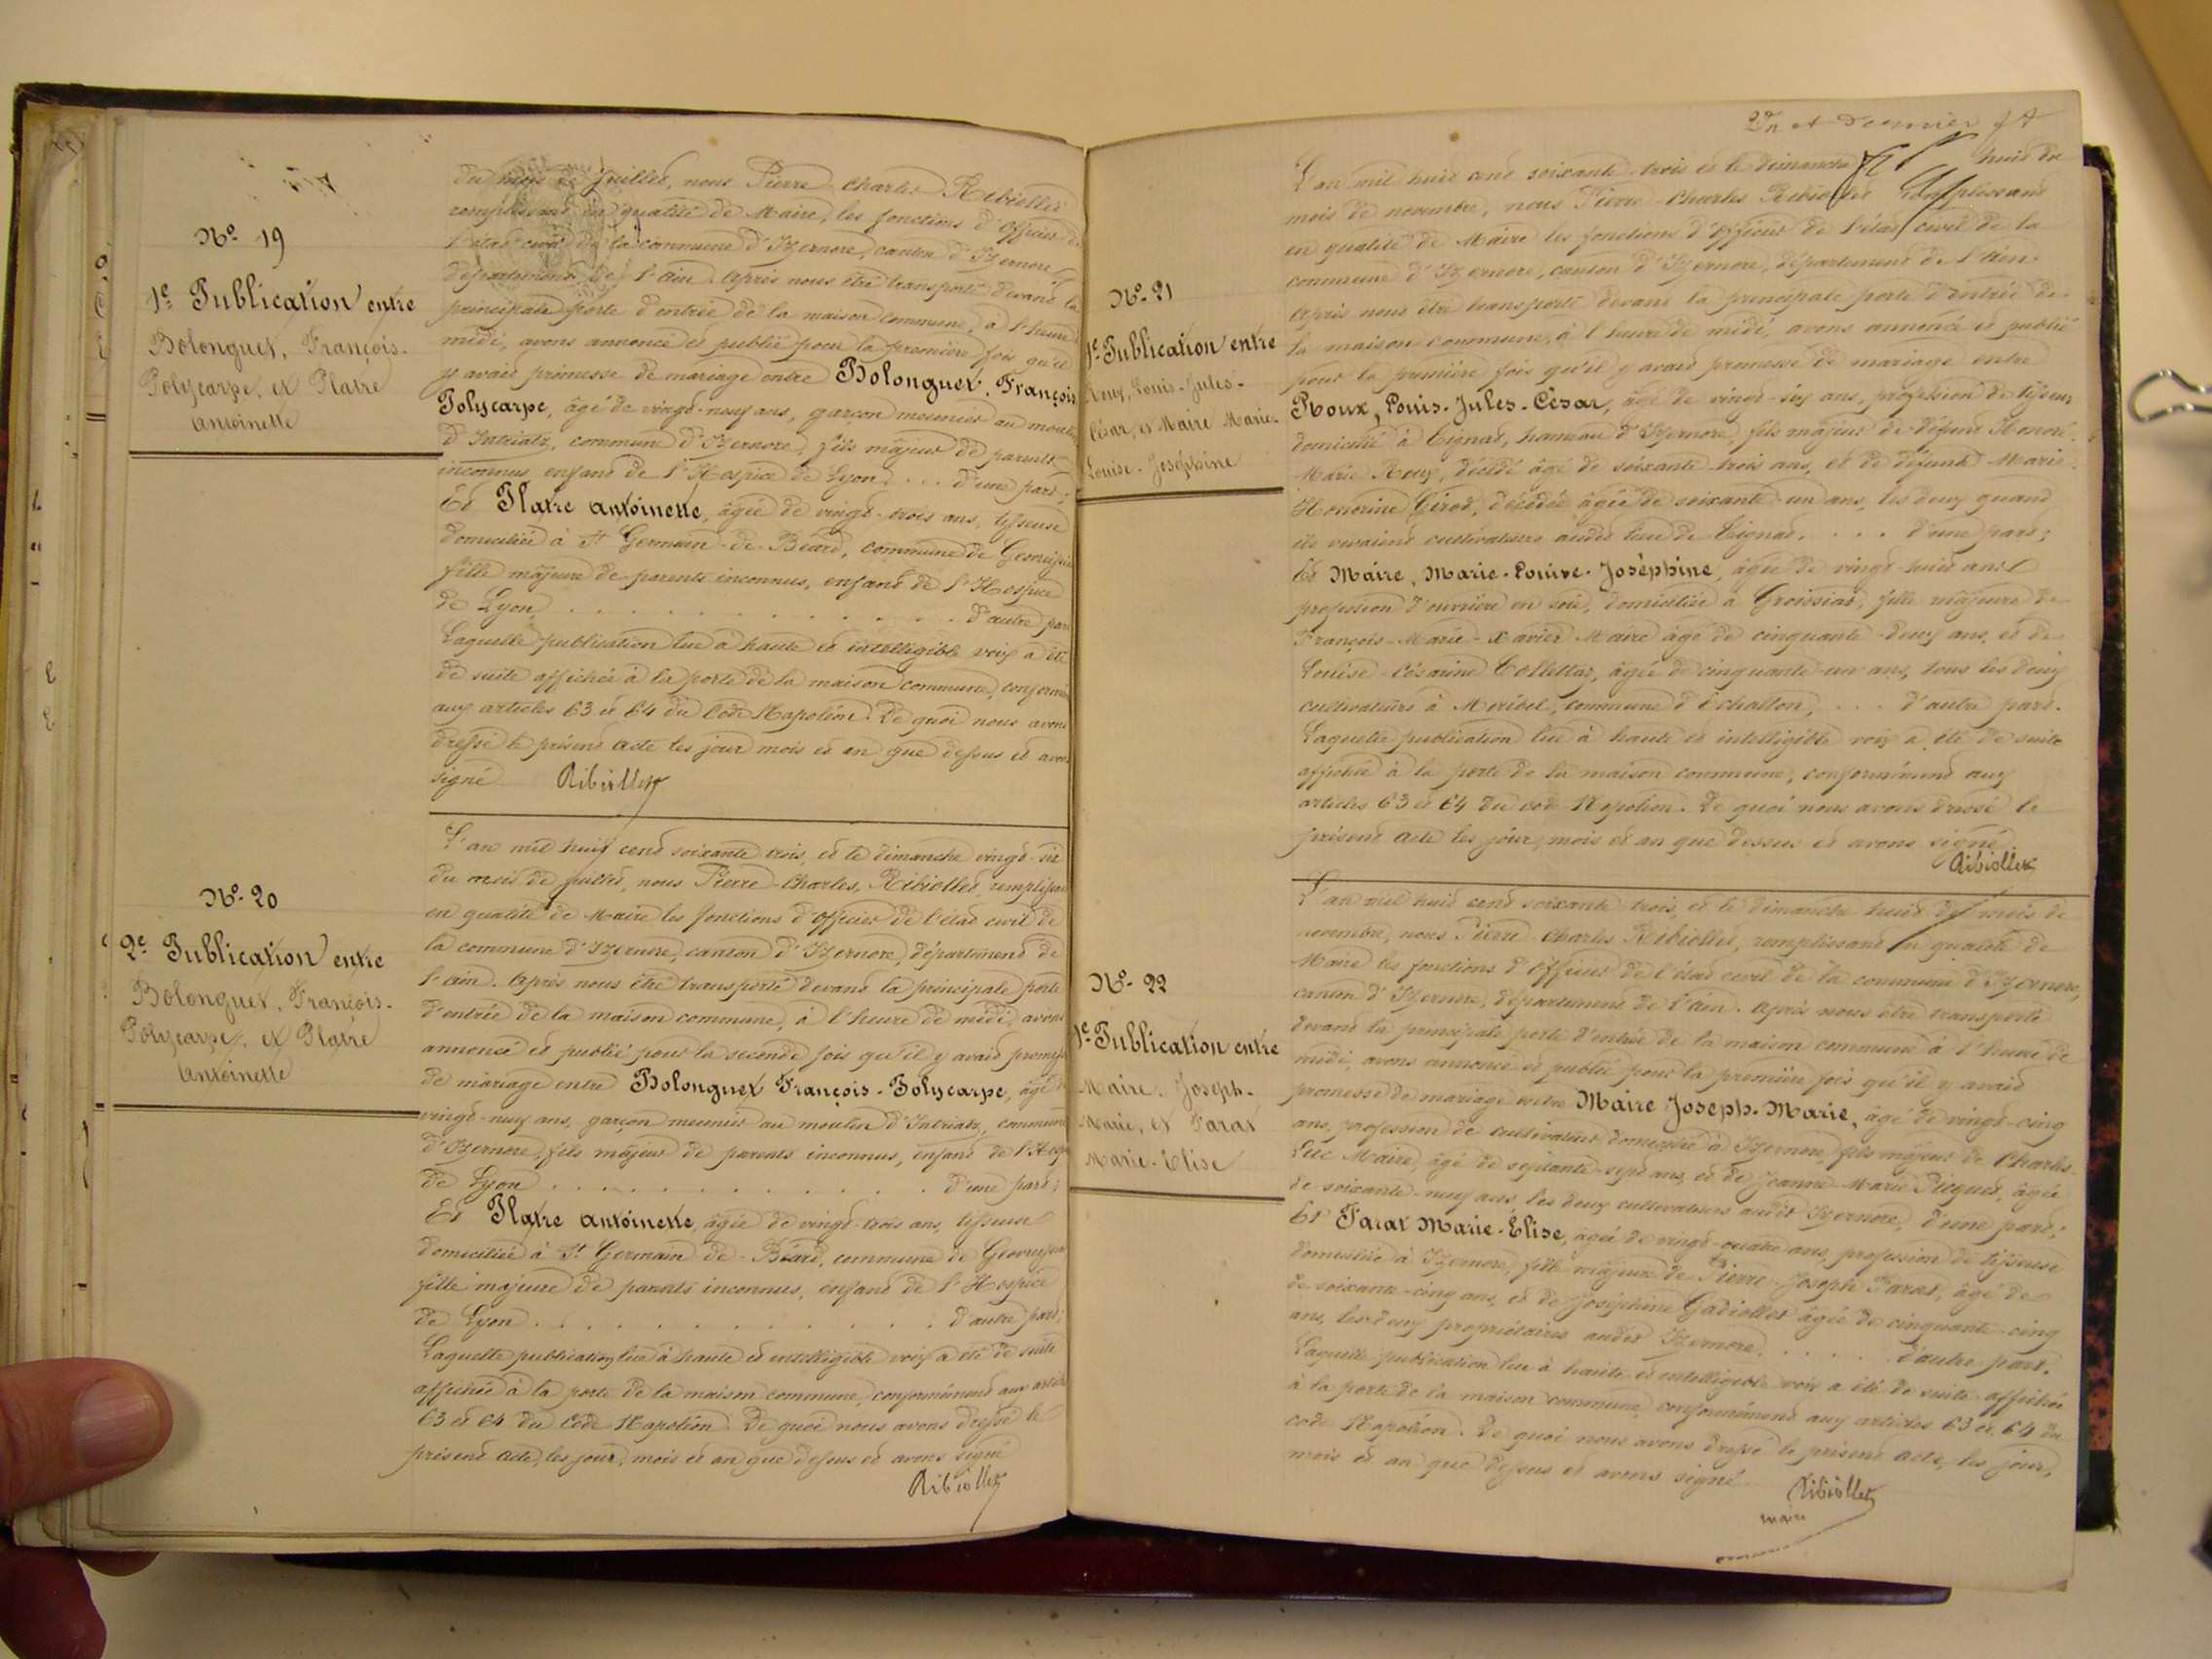 Nº 19
1e Publication entre
Bolonguet, François-
Polycarpe, et Platre
Antoinette
du mois de Juillet, nous Pierre Charles Ribiollet
remplissant en qualité de Maire, les fonctions d'officier de
l'état civil de la commune d'Izernore, canton d'Izernore,
département de l'Ain. Après nous être transporté devant la
principale porte d'entrée de la maison commune, à l'heure de
midi, avons annoncé et publié pour la première fois qu'il
y avait promesse de mariage entre Bolonguet, François
Polycarpe, âgé de vingt-neuf ans, garçon meunier au moulin
d'Intriatz, commune d'Izernore, fils majeur de parents
inconnus, enfant de l'Hospice de Lyon . . . d'une part;
Et Platre Antoinette, âgée de vingt-trois ans, tisseuse
domiciliée à St Germain-de-Béard, commune de
fille majeure de parents inconnus, enfant de l'Hospice
de Lyon . . . . . . . . . . . . d'autre part
Laquelle publication lue à haute et intelligible voix a été
de suite affichée à la porte de la maison commune,
aux articles 63 et 64 du Code Napoléon. De quoi nous avons
dressé le présent acte les jour mois et an que dessus et avons
signé Ribiollet
Nº 20
2e Publication entre
Bolonguet, François-
Polycarpe, et Platre
Antoinette
L'an mil huit cent soixante trois, et le dimanche vingt-six
du mois de juillet, nous Pierre-Charles, Ribiollet, remplissant
en qualité de Maire les fonctions d'officier de l'état civil de
la commune d'Izernore, canton d'Izernore, département de
l'Ain. Après nous être transporté devant la principale porte
d'entrée de la maison commune, à l'heure de midi, avons
annoncé et publié pour la seconde fois qu'il y avait promesse
de mariage entre Bolonguet François-Polycarpe, âgé de
vingt-neuf ans, garçon meunier au moulin d'Intriatz, commune
d'Izernore, fils majeur de parents inconnus, enfant de
de Lyon . . . . . . . . . . . . d'une part;
Et Platre Antoinette, âgée de vingt-trois ans, tisseuse
domiciliée à St Germain de-Béard, commune de Geovreissiat
fille majeure de parents inconnus, enfant de l'Hospice
de Lyon . . . . . . . . . . . . d'autre part;
Laquelle publication lue à haute et intelligible voix a été de suite
affichée à la porte de la maison commune, conformément aux
63 et 64 du Code Napoléon. De quoi nous avons dressé le
présent acte, les jour, mois et an que dessus et avons signé
Ribiollet
Nº 21
1e Publication entre
Roux, Louis-Jules-
César, et Maire Marie-
Louise-Joséphine
et dernier
L'an mil huit cent soixante-trois et le dimanche huit du
mois de novembre, nous Pierre-Charles Ribiollet remplissant
en qualité de Maire les fonctions d'officier de l'état civil de la
commune d'Izernore, canton d'Izernore, département de l'Ain
Après nous être transporté devant la principale porte d'entrée de
la maison commune, à l'heure de midi, avons annoncé et publié
pour la première fois qu'il y avait promesse de mariage entre
Roux, Louis-Jules-César, âgé de vingt-six ans, profession de tisseur
domicilié à Tignat, hameau d'Izernore, fils majeur de défunt Honoré-
Marie Roux, décédé âgé de soixante-trois ans, et de défunte Marie
Honorine Girod, décédée âgée de soixante-un ans, les deux quand
ils vivaient cultivateurs audit lieu de Tignat. . . . d'une part;
Et Maire, Marie-Louise-Joséphine, âgée de vingt-huit ans
profession d'ouvrière en soie, domiciliée à Groissiat, fille majeure de
François-Marie-Xavier Maire âgé de cinquante-deux ans, et de
Louise-Césarine Collettaz, âgée de cinquante-un ans, tous les deux
cultivateurs à , commune d'Echallon, . . . d'autre part.
Laquelle publication lue à haute et intelligible voix a été de suite
affichée à la porte de la maison commune, conformément aux
articles 63 et 64 du code Napoléon. De quoi nous avons dressé le
présent acte les jour, mois et an que dessus et avons signé
Ribiollet
Nº 22
1e Publication entre
Maire, Joseph-
Marie, et Parat
Marie-Elise
L'an mil huit cent soixante trois, et le dimanche huit du mois de
novembre, nous Pierre-Charles Ribiollet, remplissant en qualité de
Maire les fonctions d'officier de l'état civil de la commune d'Izernore,
canton d'Izernore, département de l'Ain. Après nous être transporté
devant la principale porte d'entrée de la maison commune à l'heure de
midi, avons annoncé et publié pour la première fois qu'il y avait
promesse de mariage entre Maire Joseph-Marie, âgé de vingt-cinq
ans, profession de cultivateur domicilié à Izernore, fils majeur de Charles-
Maire, âgé de septante-sept ans, et de Jeanne-Marie Picquet, âgée
de soixante-neuf ans, les deux cultivateurs audit Izernore, d'une part;
Et Parat Marie-Elise, âgée de vingt-quatre ans, profession de tisseuse
domiciliée à Izernore, fille majeure de Pierre-Joseph Parat, âgé de
de soixante-cinq ans, et de Joséphine Gadiollet âgée de cinquante-cinq
ans, les deux propriétaires audit Izernore. . . . . . d'autre part.
Laquelle publication lue à haute et intelligible voix a été de suite affichée
à la porte de la maison commune, conformément aux articles 63 et 64 du
code Napoléon. De quoi nous avons dressé le présent acte, les jour,
mois et an que dessus et avons signé
Ribiollet
maire